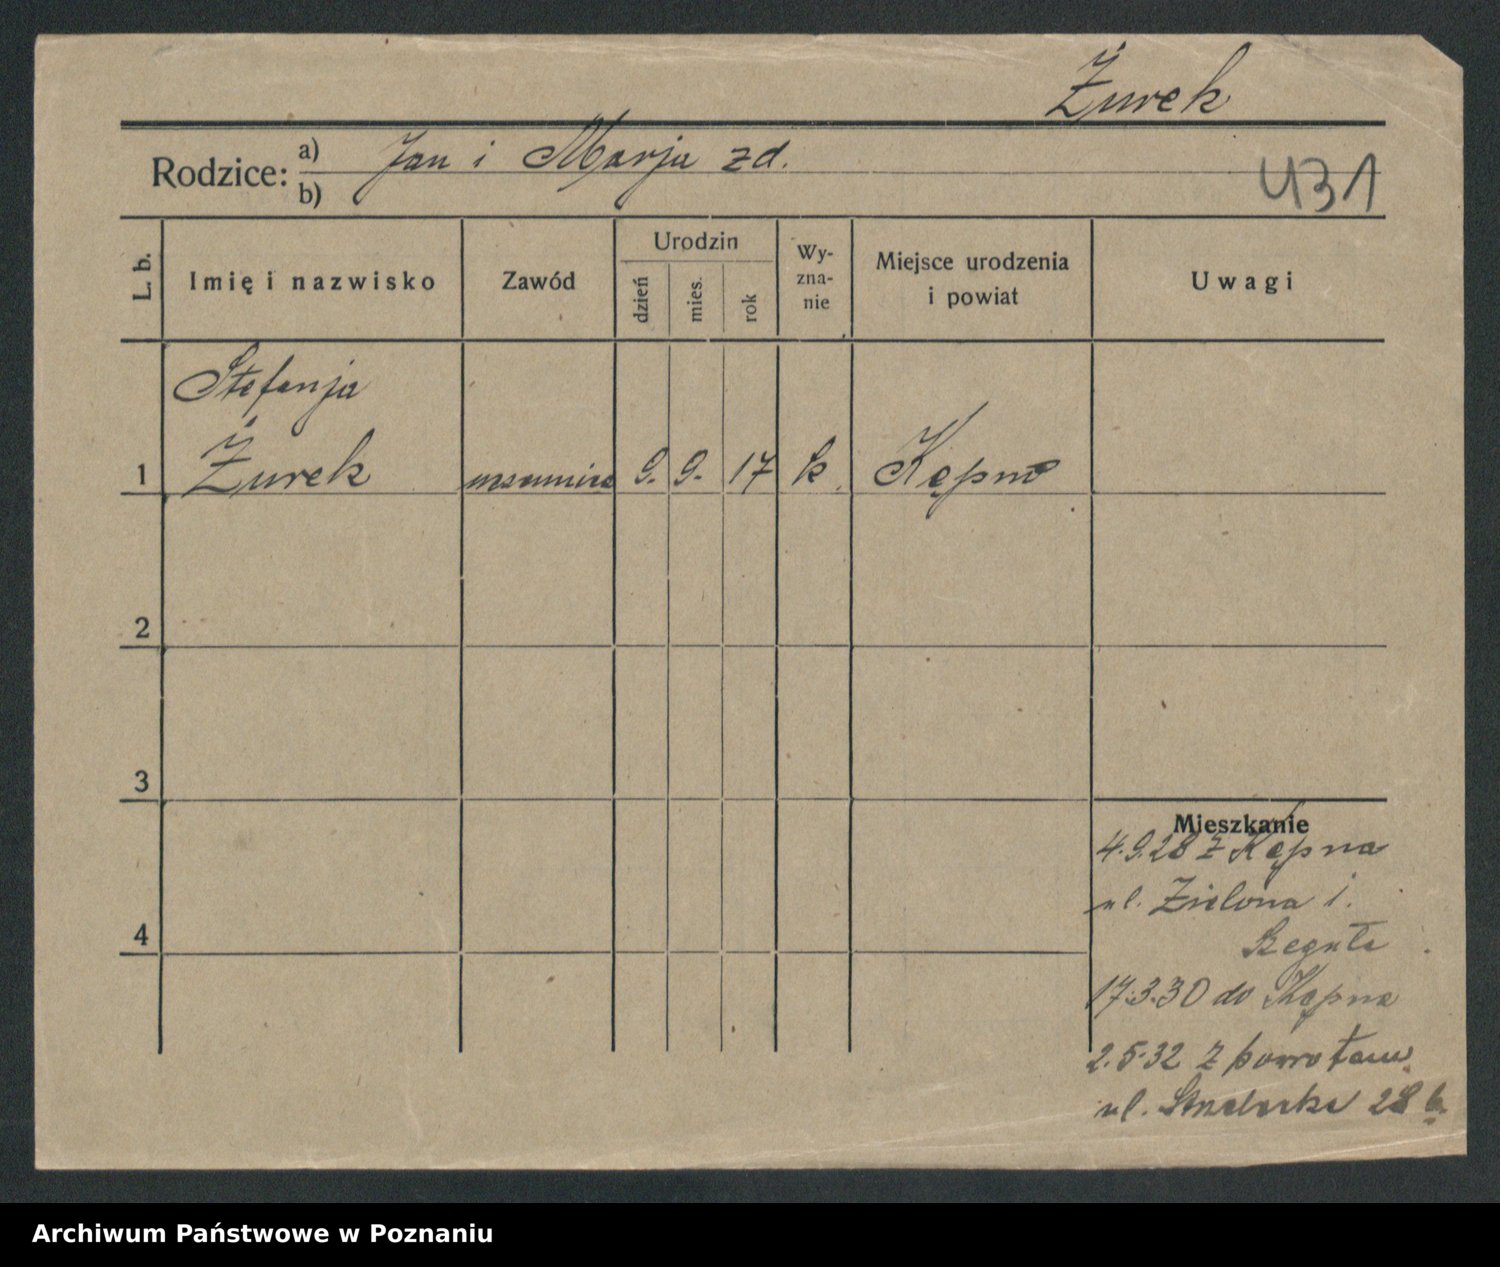 Żurek
Rodzice: a) Jan i Marja zd.
b)
431
L. b.
Imię i nazwisko
Zawód
Urodzin
dzień
mies.
rok
Wy-
zna-
nie
Miejsce urodzenia
i powiat
Uwagi
Stefanja
1 Żurek uczennica 9. 9. 17 k Kępno
2
3
4
Mieszkanie
4.9.28 z Kępna
ul. Zielona 1.
17.3.30 do Kępna
2.5.32 z powrotem
ul. 28 b.
Archiwum Państwowe w Poznaniu